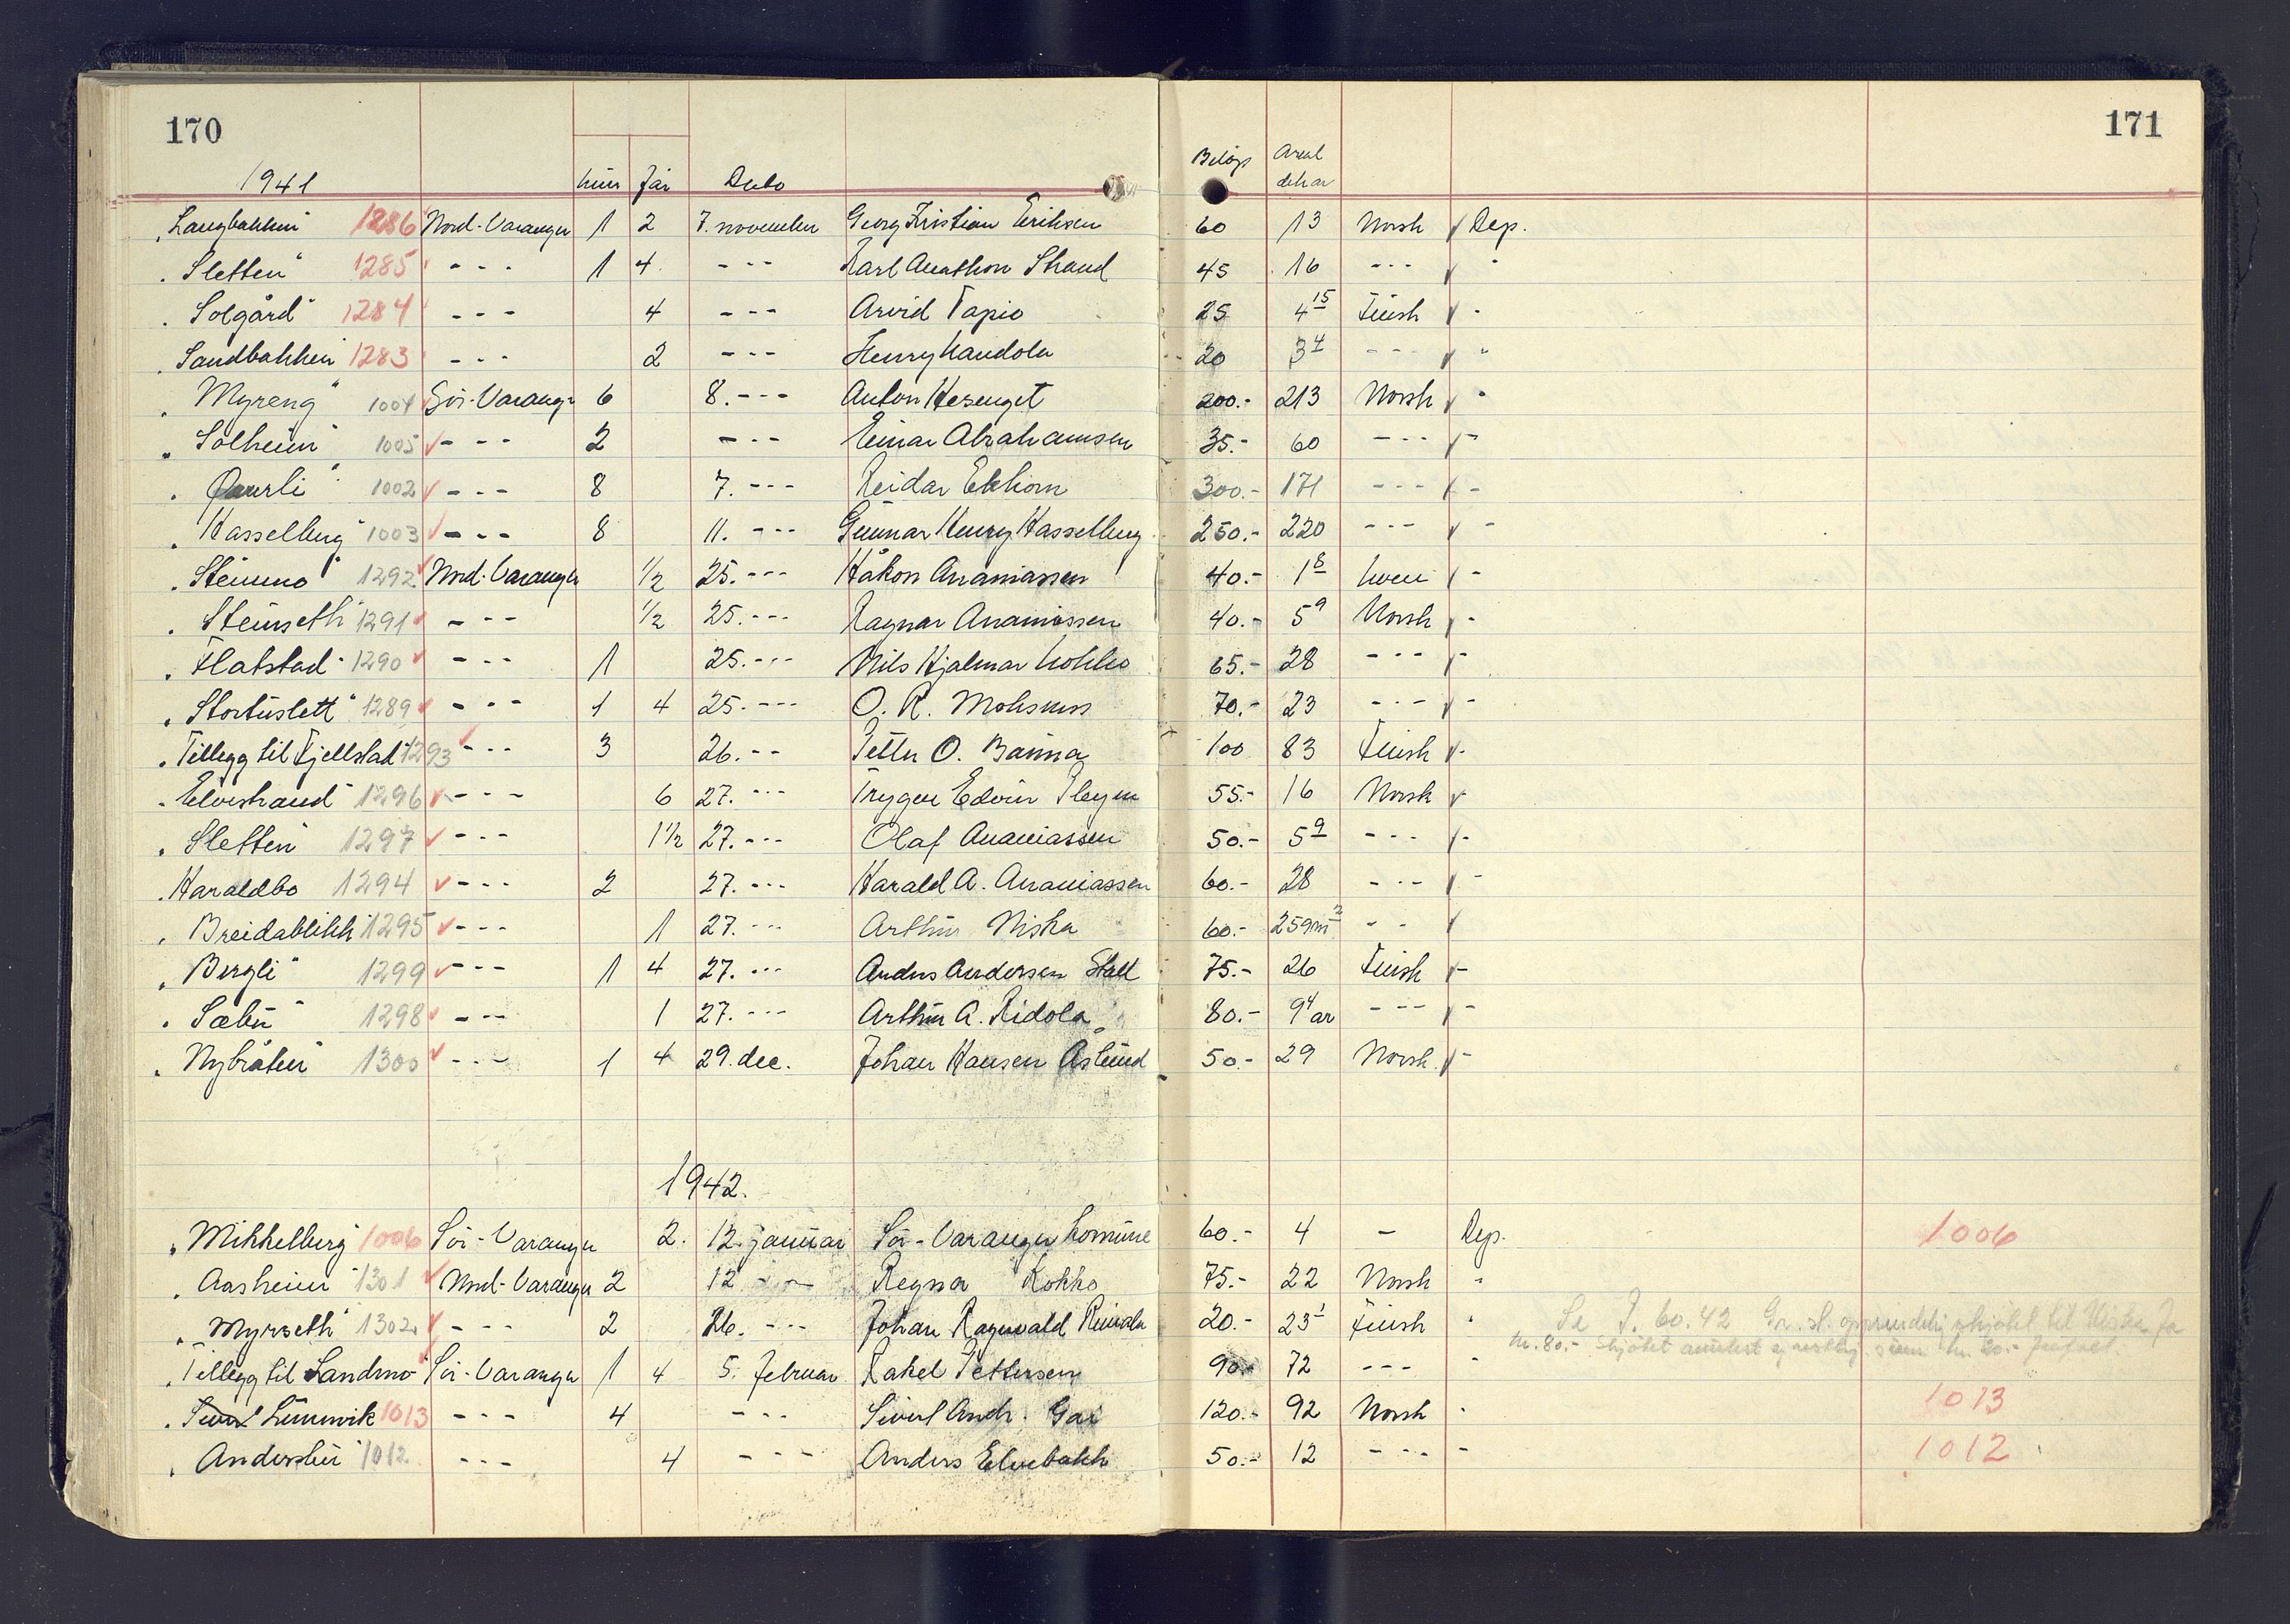 170
171
1941 kuer får Dato Beløp Areal dekar
"Langbakken" 1286 Nord-Varanger 1 2 7. november Georg Kristian Eriksen 60 13 Norsk Dep.
"Sletten" 1285 - - - 1 4 - - - Karl Anathon Strand 45 16 - - - "
"Solgård" 1284 - - - 4 - - - Arvid Tapio 25 4 15 Finsk "
"Sandbakken" 1283 - - - 2 - - - Henry 20 3 4 - - - "
"Myreng" 1004 Sør-Varanger 6 8. - - - Anton 200.- 213 Norsk "
"Solheim" 1005 - - - 2 - - - Einar Abrahamsen 35.- 60 - - - -
"Furuli" 1002 - - - 8 7. - - - Reidar Ekhorn 300.- 171 - - - -
"Hasselberg" 1003 - - - 8 11. - - - Gunnar Henry Hasselberg 250.- 220 - - - -
"Steinmo" 1292 Nord-Varanger 1/2 25. - - - Håkon Ananiassen 40.- 1 8 kven -
"Steinseth" 1291 - - - 1/2 25. - - - Ragnar Ananiassen 40.- 5 9 Norsk -
"Flatstad" 1290 - - - 1 25. - - - Nils Hjalmar Kokko 65.- 28 - - - -
"Stortuslett" 1289 - - - 1 4 25. - - - O. R. Mohsness 70.- 23 - - - -
"Tillegg til Fjellstad" 1293 - - - 3 26. - - Petter O. Banna 100 83 Finsk -
"Elvestrand" 1296 - - - 6 27. - - - Trygve Edvin Pleym 55.- 16 Norsk
"Sletten" 1297 - - - 1 1/2 27. - - - Olaf Ananiassen 50.- 5 9 - - - -
"Haraldbo 1294 - - - 2 27. - - - Harald A. Ananiassen 60.- 28 - - - -
"Breidablikk" 1295 - - - 1 27. - - - Arthur Niska 60.- 259 m2 - -
"Bergli" 1299 - - - 1 4 27. - - - Anders Andersen Stall 75.- 26 Finsk -
"Sæbu" 1298 - - - 1 27. - - - Arthur A. Ridola 80.- 9 4 ar - - - -
"Nybråten" 1300 - - - 1 4 29. dec. Johan Hansen Aslund 50.- 29 Norsk -
1942.
"Mikkelberg" 1006 Sør-Varanger 2. 12. januar Sør-Varanger komune 60.- 4 - Dep. 1006
"Aasheim" 1301 Nord-Varanger 2 12 - - Regna Kokko 75.- 22 Norsk "
"Myrseth" 1302 - - - 2 26. - - - Johan Ragnvald 20.- 23 1 Finsk " Se J. 60.42 Gr. st. opprindelig skjøtet til Niska for
kr. 80.- Skjøtet kr. 20.-
"Tillegg til Sandmo" Sør-Varanger 1 4 5. februar Rakel Pettersen 90.- 72 - - - "
"Lunnvik 1013 - - - 4 - - - Sivert Andr. 120.- 92 Norsk " 1013
"Anderslie" 1012 - - - 4 - - - Anders Elvebakk 50.- 12 - - - - 1012